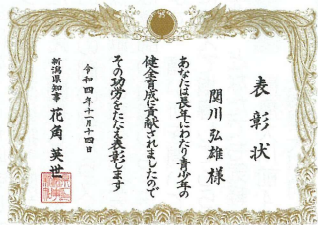 表彰状
関川弘雄様
あなたは長年にわたり青少年の
健全育成に貢献されましたので
その功労をたたえ表彰します
令和四年十一月十四日
新潟県知事 花角英世